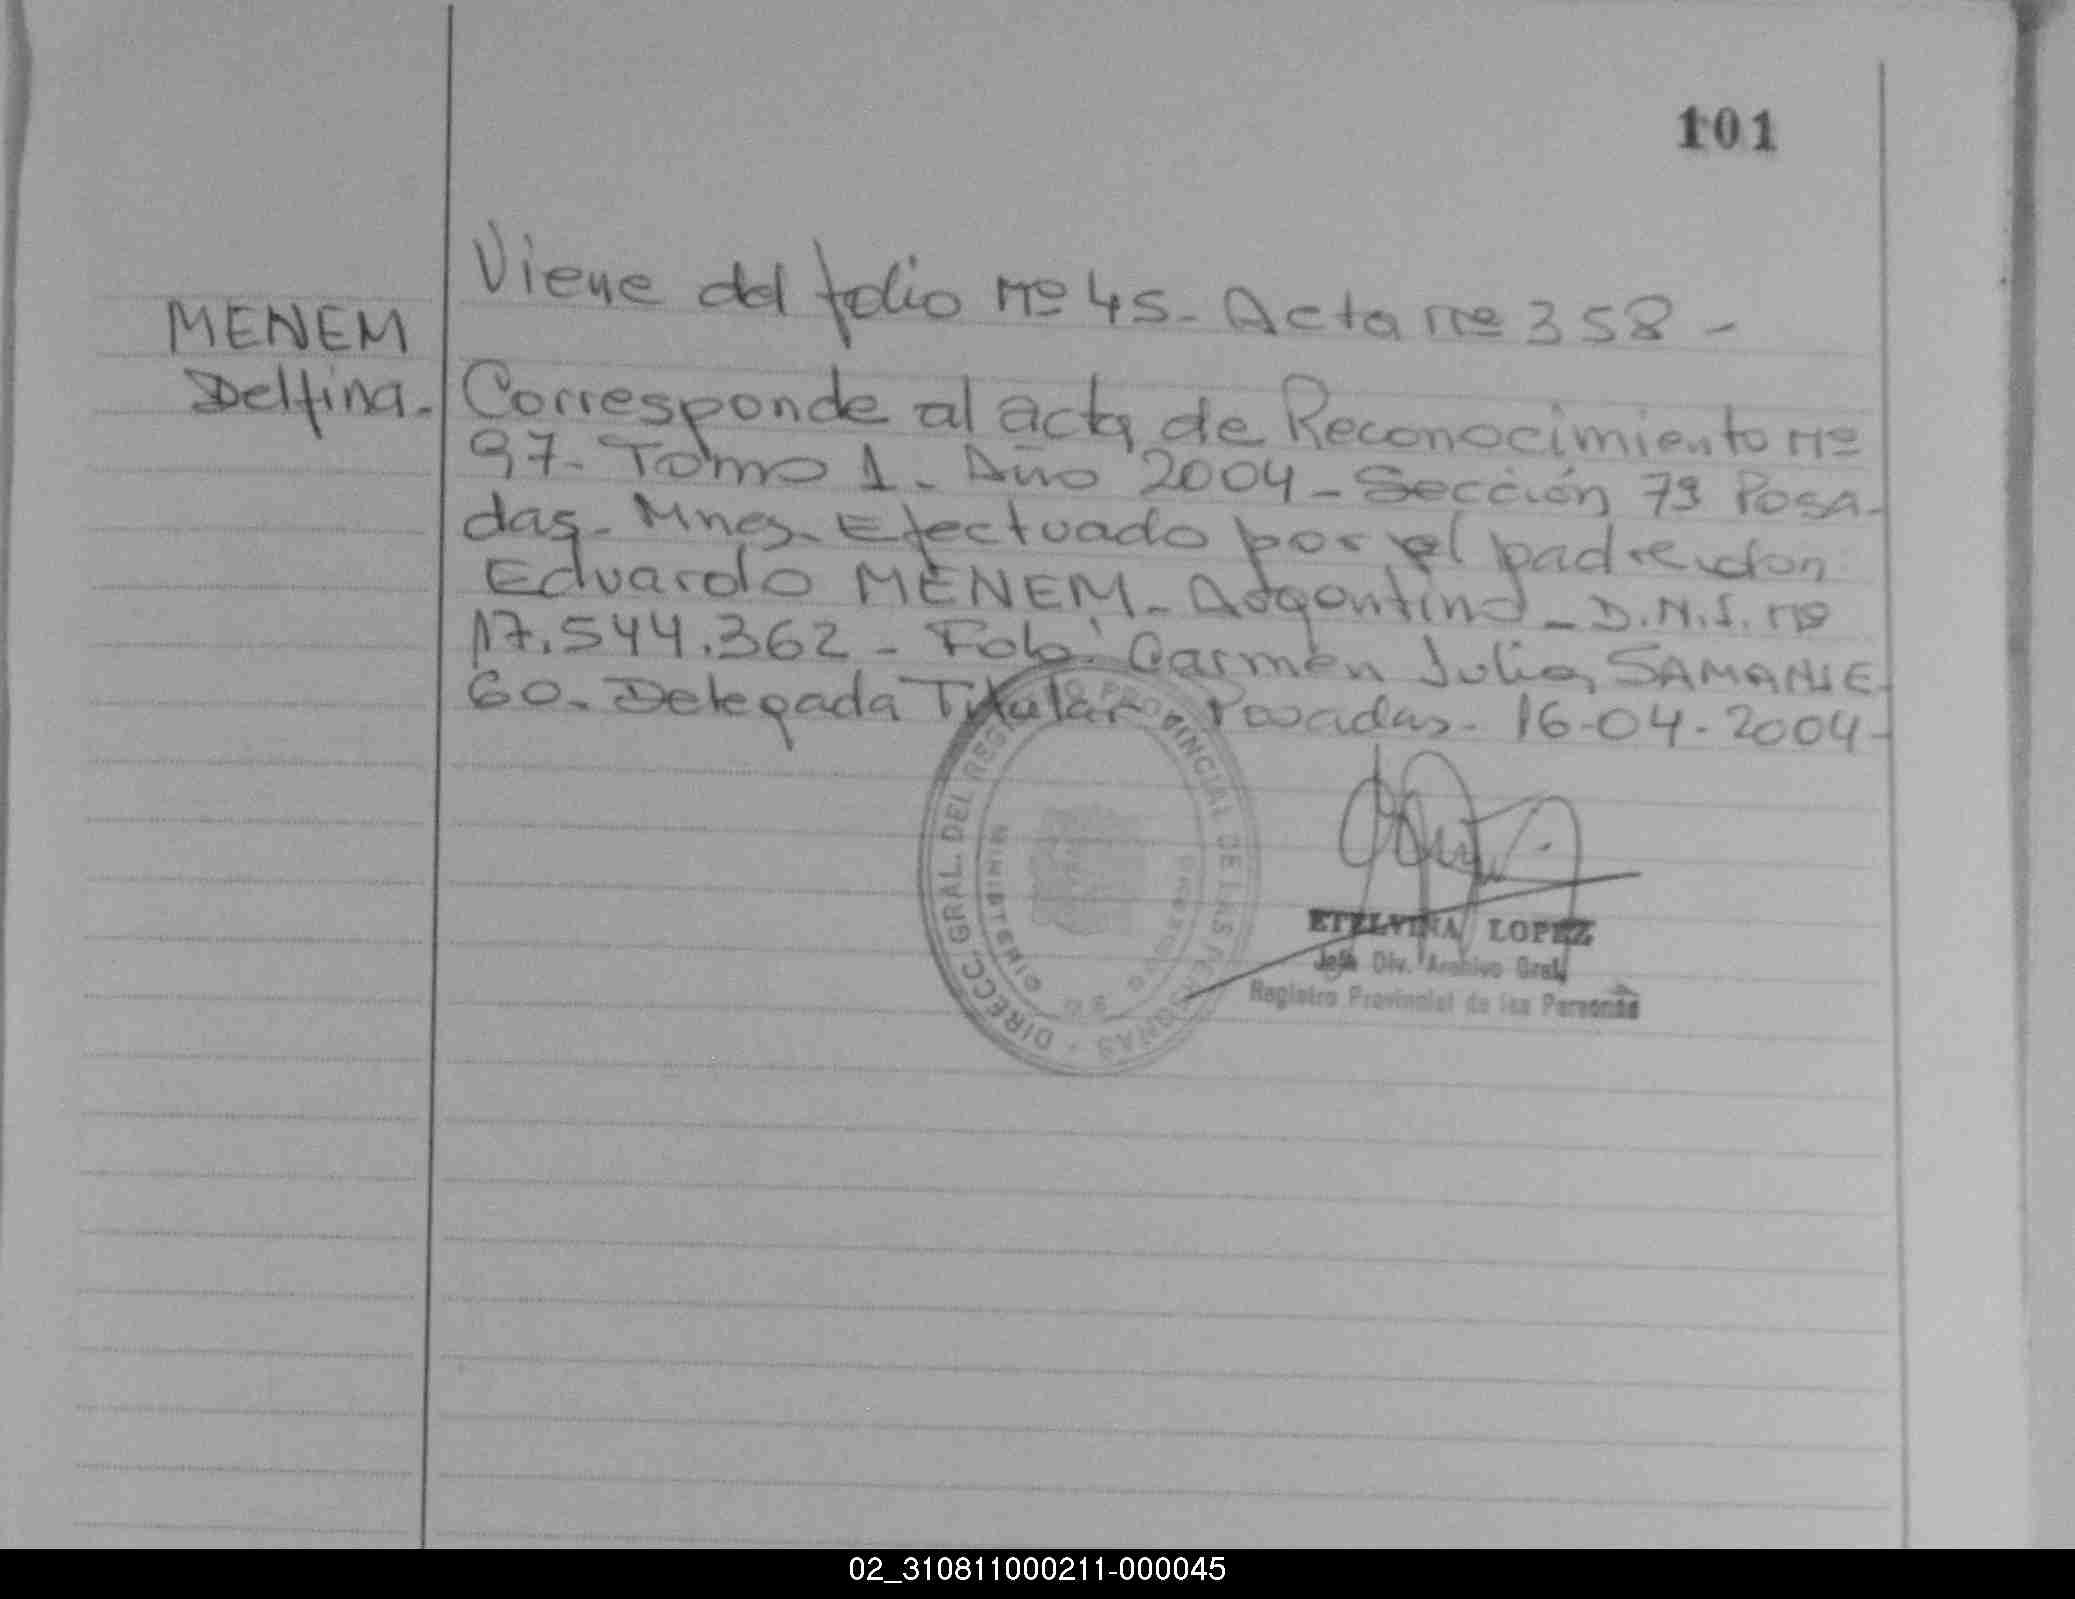 101
Viene del folio Nº 45- Acta nº 358 -
MENEM
Delfina.
Corresponde al acta de Reconocimiento Nº
97- Tomo 1- Año 2004 - Sección 7ª Posa-
das- Mnes- Efectuado por el padre don
Eduardo MENEM- Argentino - D.N.I. nº
17.544.362 - Fdo: Carmen Julia SAMANIE-
GO- Delegada Titular. Posadas- 16-04-2004-
DIRECC. GRAL. DEL REGISTRO PROVINCIAL DE LAS PERSONAS
MINISTERIO DE GOBIERNO
ETELVINA LOPEZ
Jefe Div. Archivo Gral.
Registro Provincial de las Personas
02_310811000211-000045